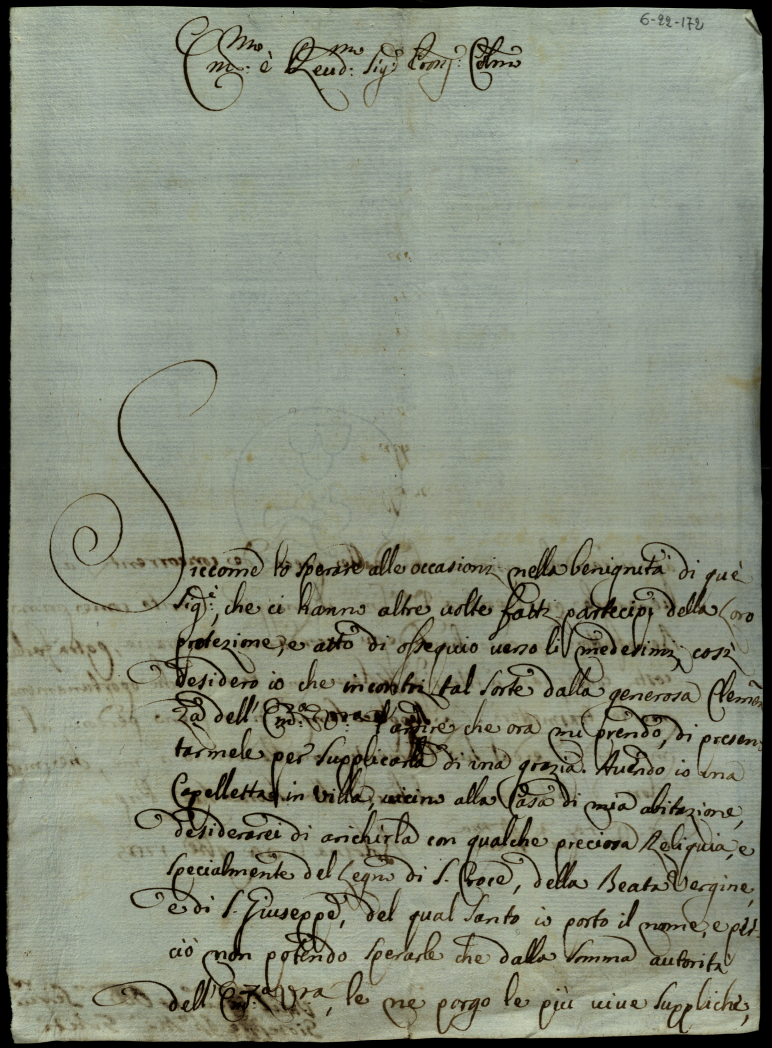 6-22-172
Em:mo è Reud:mo Sig:r Pron: Colmo
Siccome lo sperare alle occasioni nella benignità di què
Sig:i, che ci hanno altre uolte fatti partecipi della Loro
protezione, e atto di ossequio uerso li medesimi, così
desidero io che incontri tal sorte dalla generosa Clemen
za dell' Em:za Vra l'ardire che ora mi prendo, di presen
tarmele per supplicarla di una grazia. Auendo io una
Capelletta in Villa, uicino alla Casa di mia abitazione,
desiderarei di arichirla con qualche preciosa Reliquia, e
specialmente del Legno di S. Croce, della Beata Vergine,
e di S. Giuseppe, del qual Santo io porto il nome, e per-
ciò non potendo sperarle che dalla somma autorità
dell' Em:za Vra, le ne porgo le più uiue suppliche,